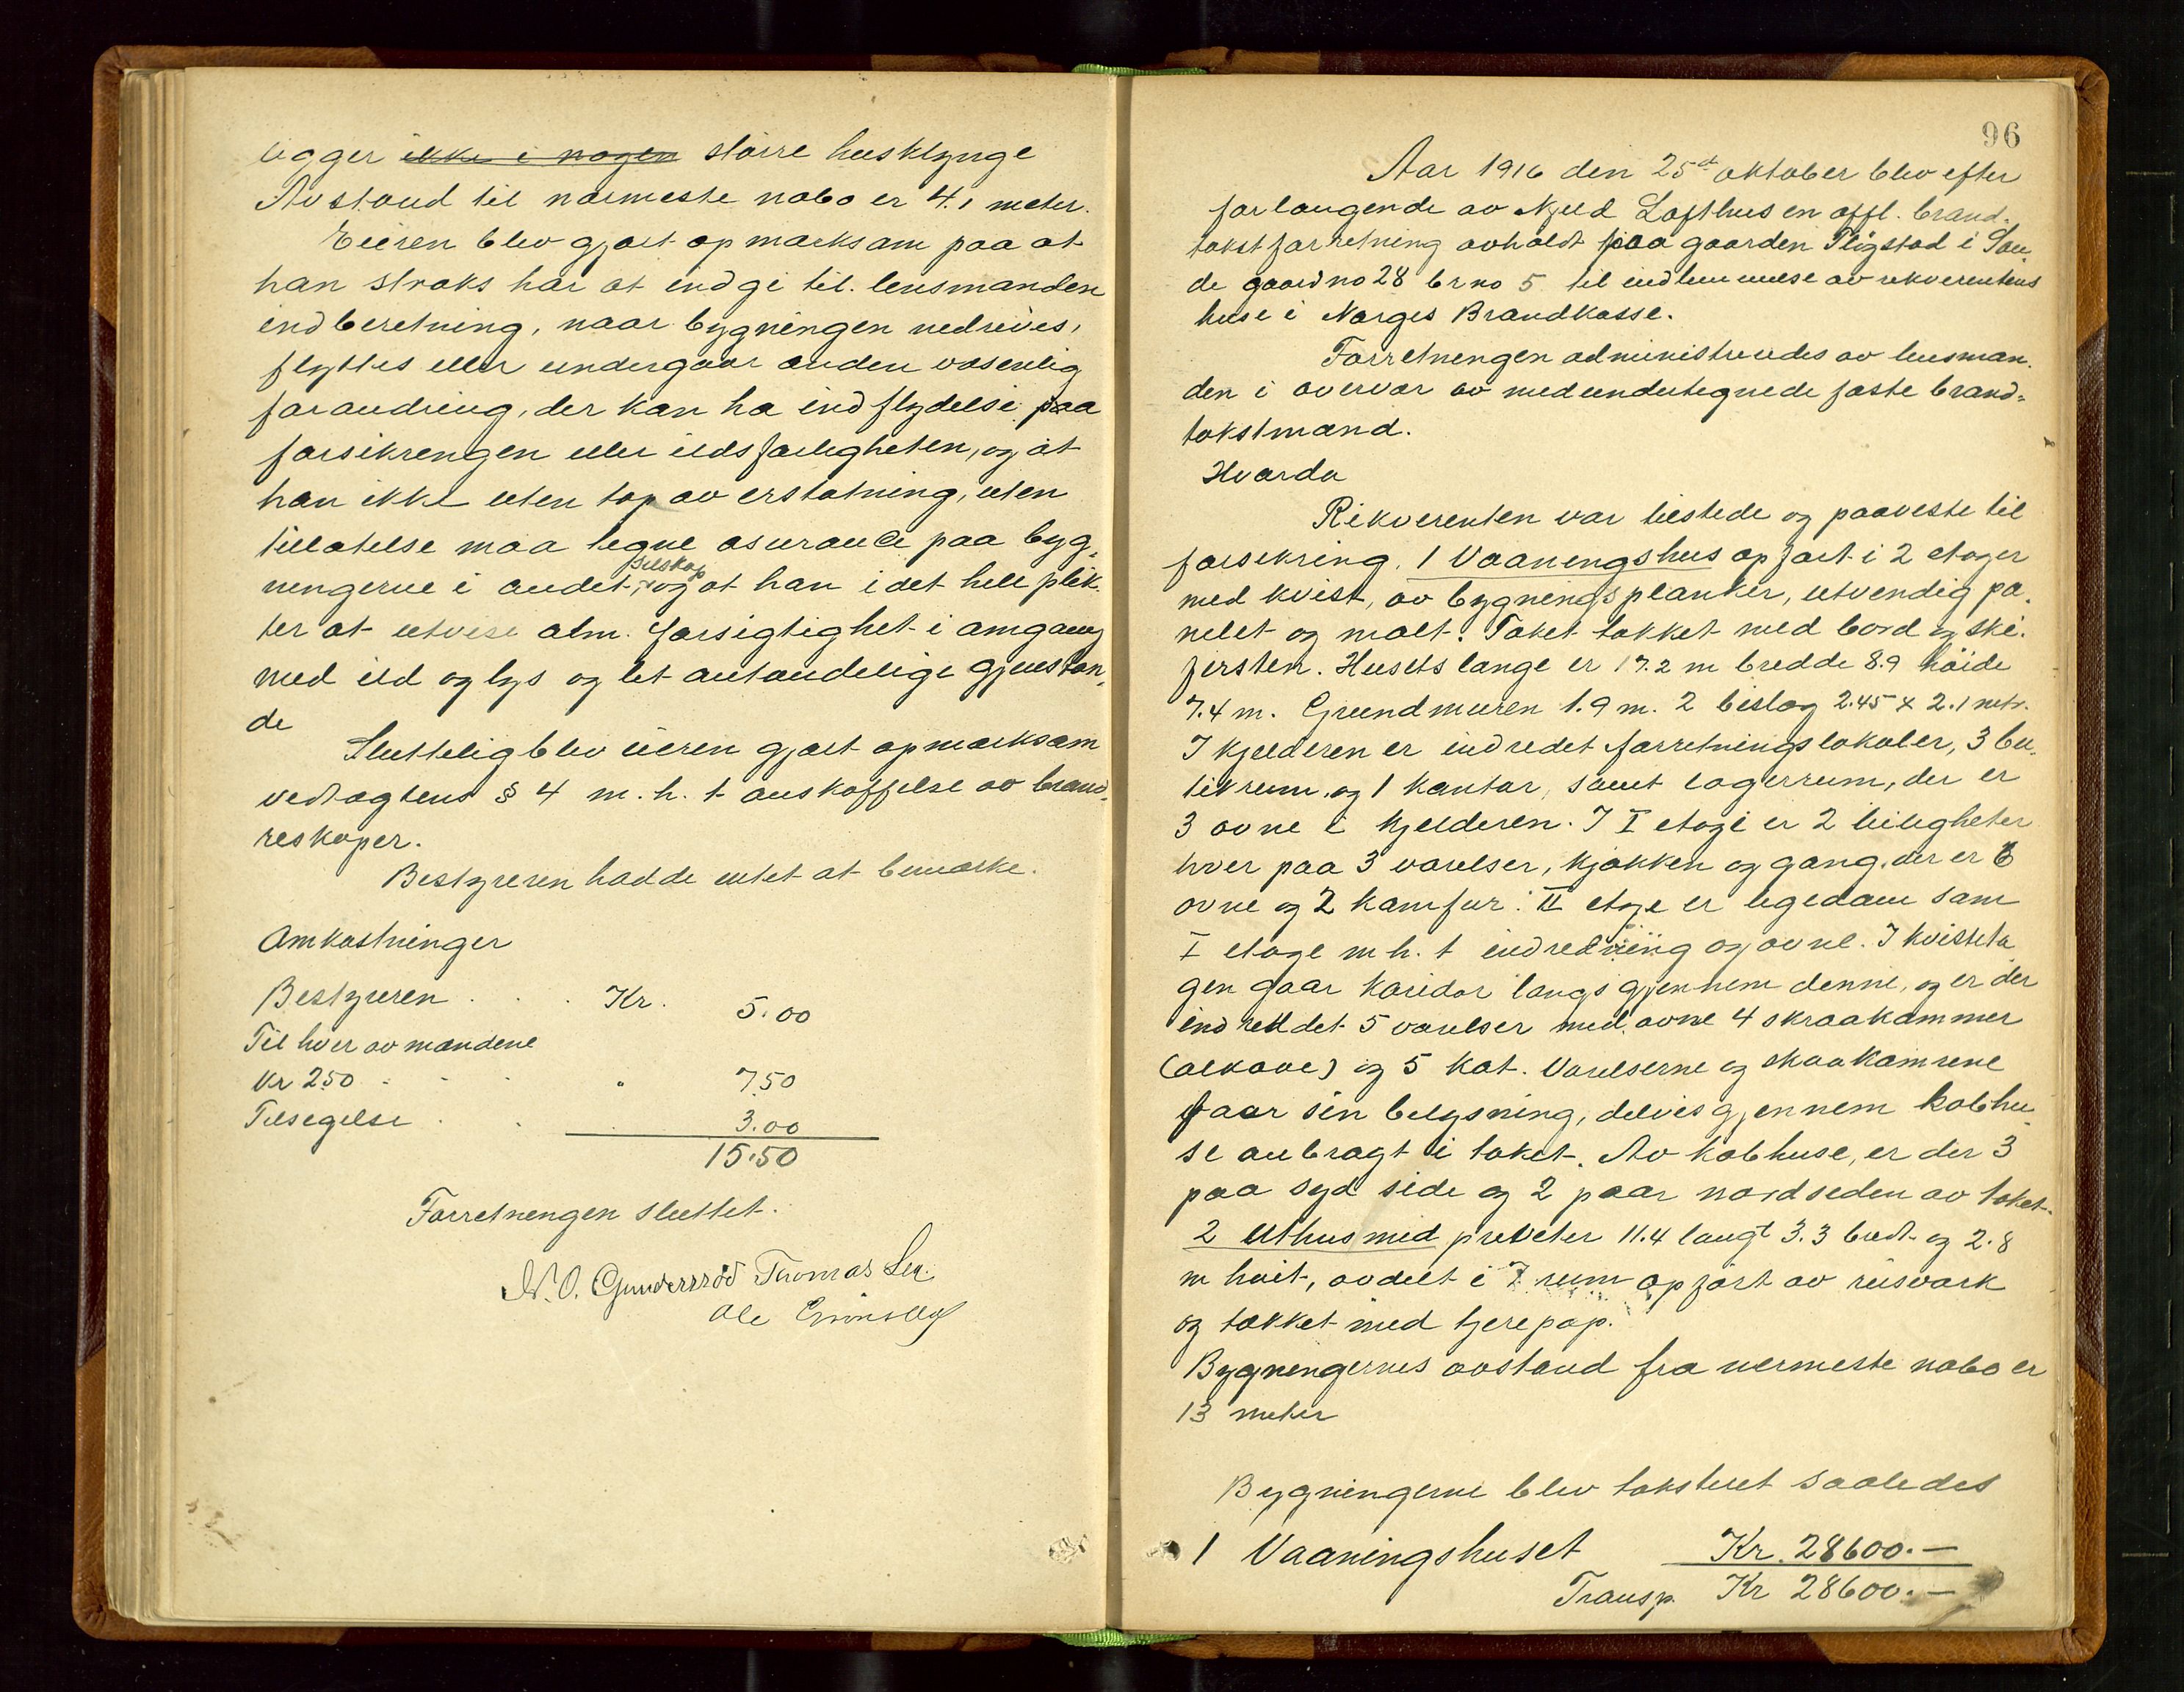 ligger ikke i nogen större husklynge
Avstand til nærmeste nabo er 4.1 meter.
Eieren blev gjort opmerksam paa at
han straks har at indgi til lensmanden
indberetning, naar bygningen nedrives,
flyttes eller undergaar anden væsenlig
forandring, der kan ha indflydelse paa
forsikringen eller ildsfarligheten, og at
han ikke uten tap av erstatning, uten
tillatelse maa tegne asurance paa byg-
selskap
ningerne i andet, og at han i det hele plik-
ter at utvise alm. forsigtighet i omgang
med ild og lys og let antændelige gjenstan-
de
Sluttelig blev eieren gjort opmerksam
vedtagtens § 4 m. h. t anskaffelse av brand-
reskaper.
Bestyreren hadde intet at bemærke.
Omkostninger
Bestyreren . . . Kr. 5.00
Til hver av mændene
Kr 2.50 - - - " 7.50
Tilsigelse . . 3.00
15.50
Forretningen sluttet.
N. O. Gundersrød Thomas
Ole
96
Aar 1916 den 25de oktober blev efter
forlangende av Kjeld Lofthus en offl. brand-
takstforretning avholdt paa gaarden i Sau-
de gaardno 28 brno 5 til indlemmelse av rekverentens
huse i Norges Brandkasse.
Forretningen administreredes av lensman-
den i overvær av medundertegnede faste brand-
takstmænd.
Hvorda
Rekverenten var tilstede og paaviste til
forsikring. 1 Vaaningshus opført i 2 etager
med kvist, av bygningsplanker, utvendig pa-
nelet og malt. Taket tækket med bord og ski-
fersten. Husets længe er 17.2 m bredde 8.9 höide
7.4 m. Grundmuren 1.9 m. 2 bislag 2.45 x 2.1 mtr.
I kjelderen er indredet forretningslokaler, 3 bu-
tikrum og 1 kontor, samt lagerrum, der er
3 ovne i kjelderen. I I etage er 2 leiligheter
hver paa 3 værelser, kjøkken og gang. der er 6
ovne og 2 komfur. II etage er ligedan som
I etage m. h. t indredning og ovne. I kvisteta
gen gaar koridor langs gjennem denne, og er der
indreddet 5 værelser med ovne 4 skraakammer
(alkove) og 5 kot. Værelserne og skraakamrene
faar sin belysning, delvis gjennem kobhu-
se anbragt i taket. Av kobhuse, er der 3
paa syd side og 2 paar nordsiden av taket.
2 Uthus med priveter 11.4 langt 3.3 bredt og 2.8
m høit, avdelt i 7 rum opført av reisverk
og tækket med tjerepap.
Bygningernes avstand fra nermeste nabo er
13 meter
Bygningerne blev taksteret saaledes
1 Vaaningshuset Kr. 28600.-
Transp. Kr 28600.-